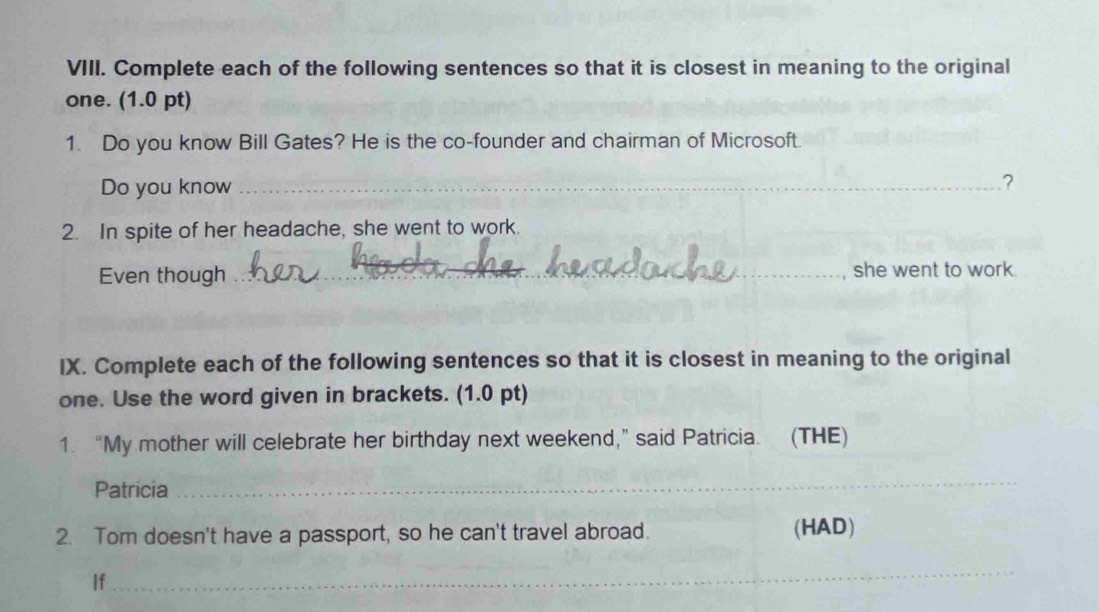 VIII. Complete each of the following sentences so that it is closest in meaning to the original
one. (1.0 pt)
1. Do you know Bill Gates? He is the co-founder and chairman of Microsoft.
Do you know ........................ ?
2. In spite of her headache, she went to work.
Even though her heada che headache, she went to work.
IX. Complete each of the following sentences so that it is closest in meaning to the original
one. Use the word given in brackets. (1.0 pt)
1. "My mother will celebrate her birthday next weekend," said Patricia. (THE)
Patricia ........................
2. Tom doesn't have a passport, so he can't travel abroad. (HAD)
If ........................